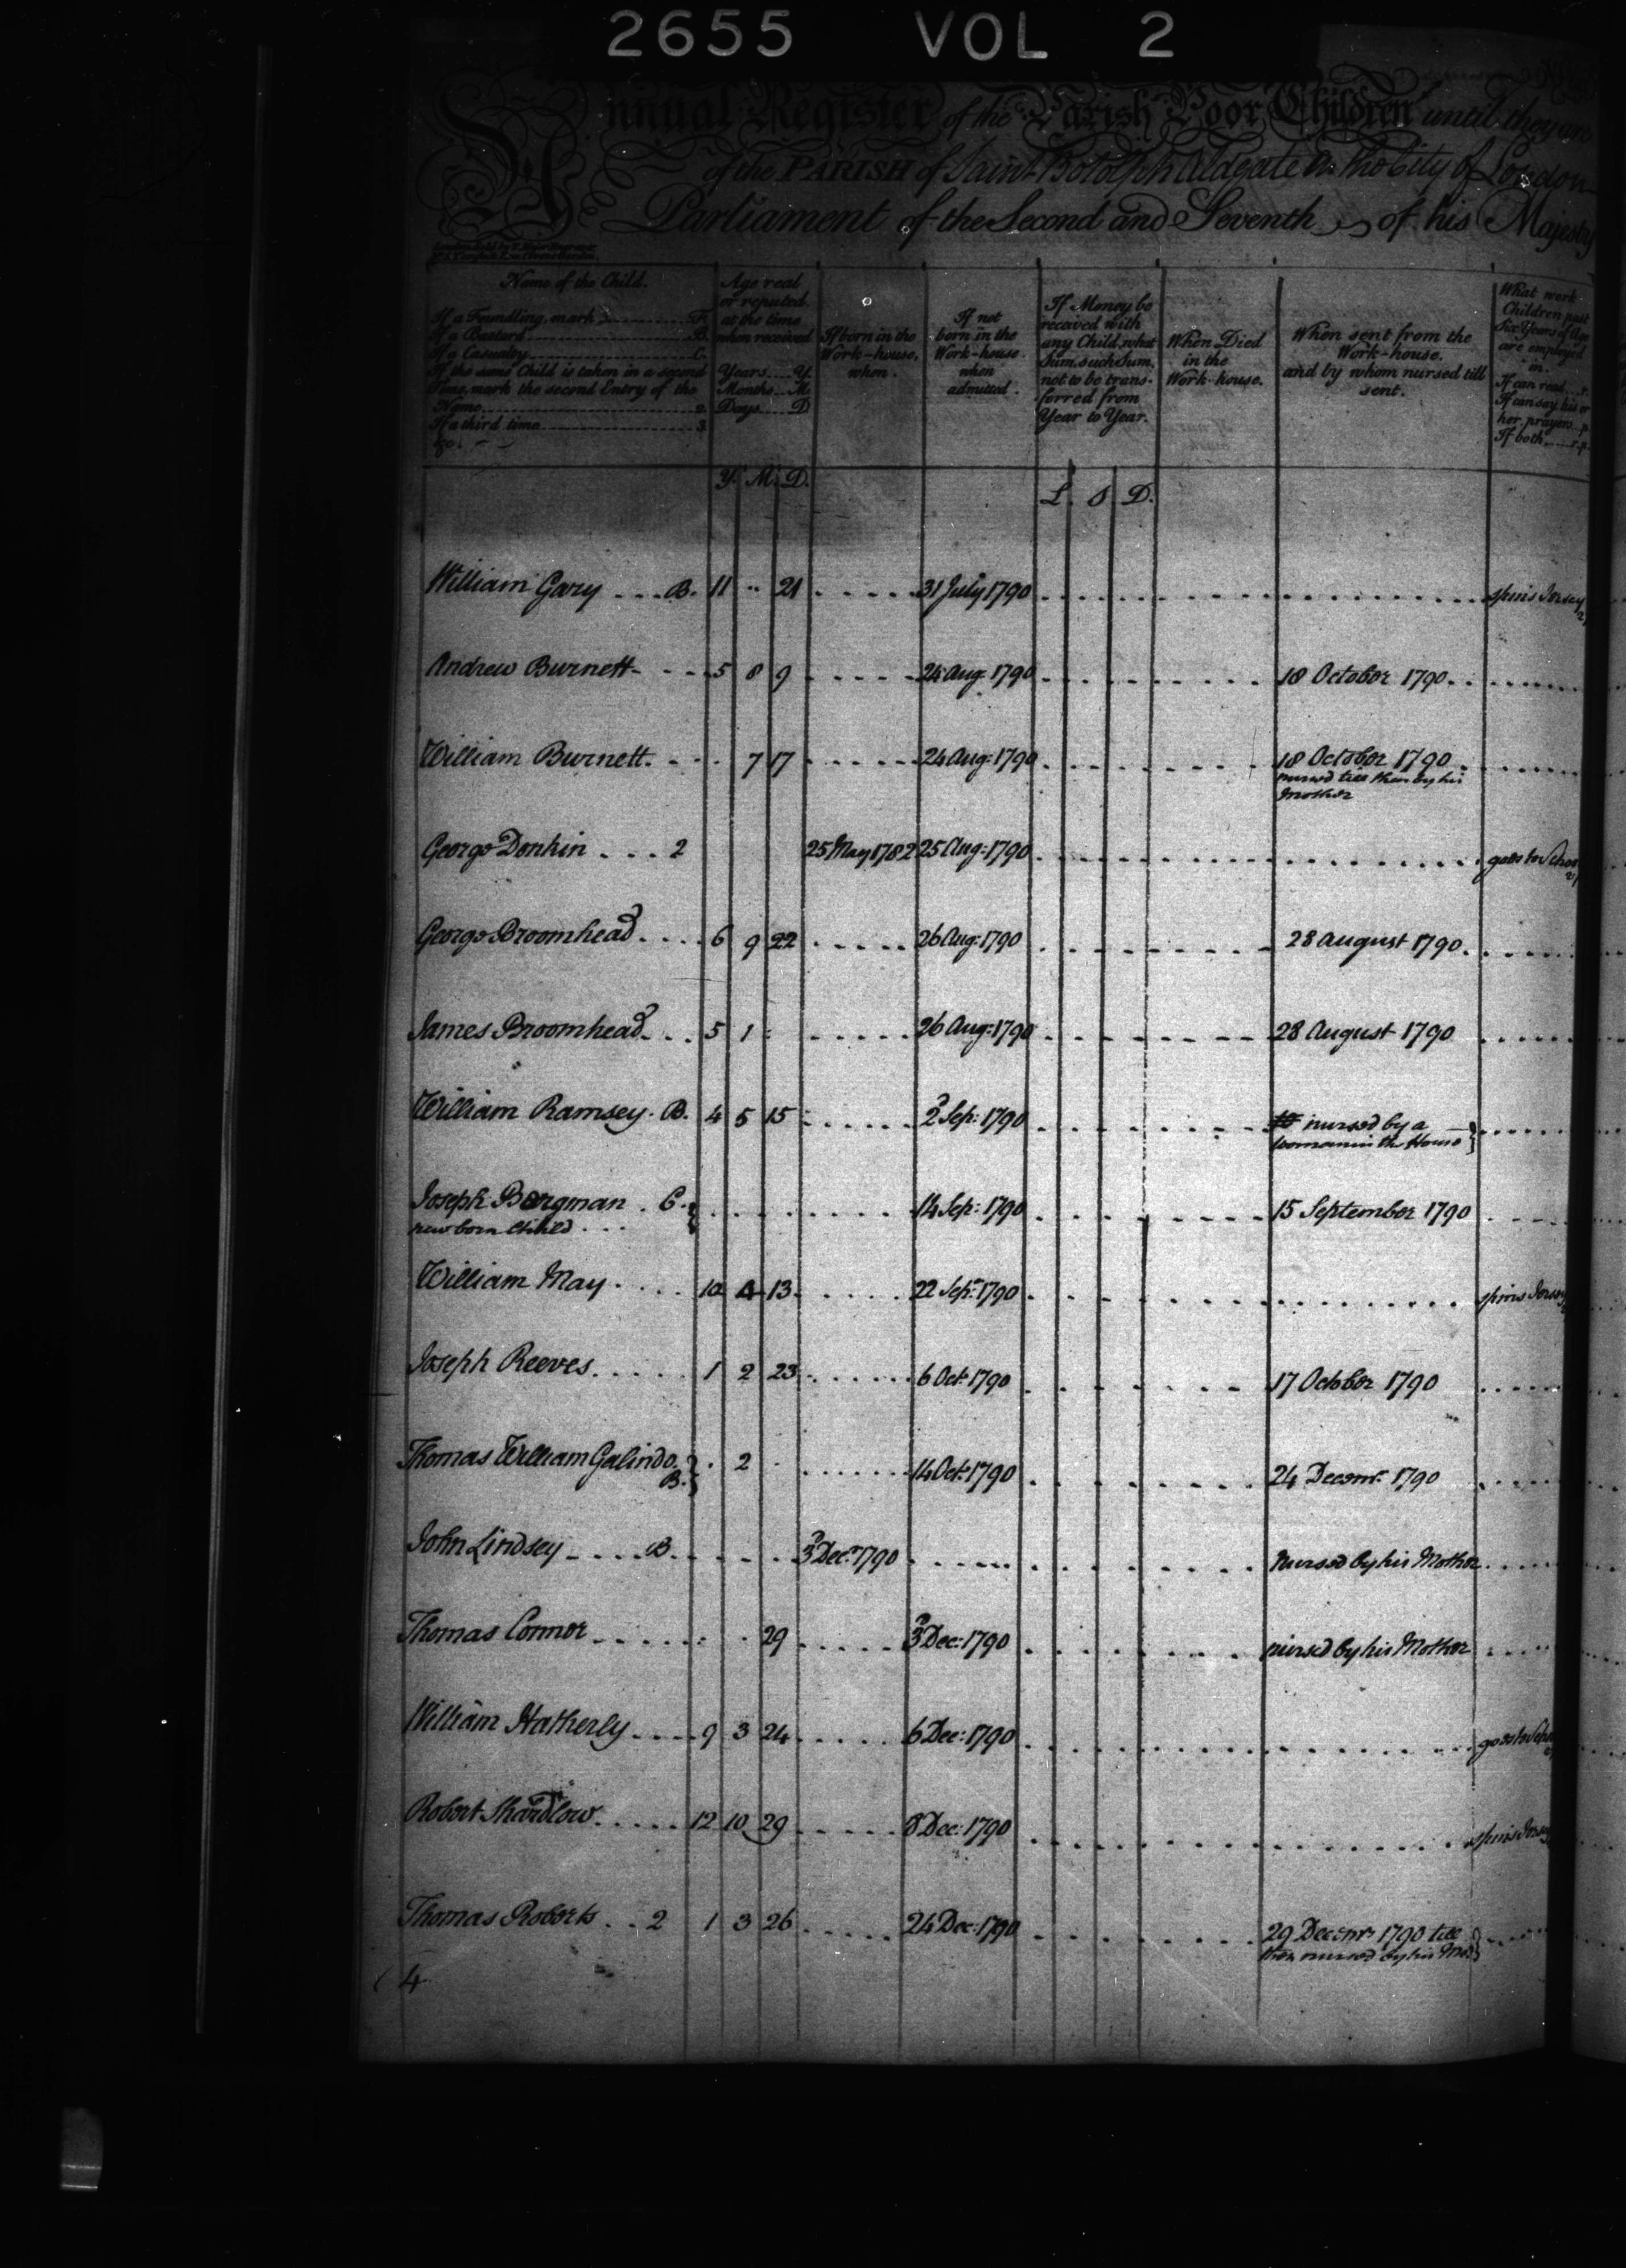 2655 VOL 2
Annual Register of the Parish Poor Children until they are
of the PARISH of Saint Botolph Aldgate in the City of London
Parliament of the Second and Seventh of his Majesty
Name of the Child.
If a Foundling, mark F.
If a Bastard B.
If a Casualty C.
If the same Child is taken in a second
Time, mark the second Entry of the
Name 2.
If a third time 3.
&c.
Age real
or reputed
at the time
when received
Years Y.
Months M.
Days D.
If born in the
Work-house,
when.
If not
born in the
Work-house
when
admitted.
If Money be
received with
any Child, what
Sum, such Sum,
not to be trans-
ferred from
Year to Year.
When Died
in the
Work-house.
When sent from the
Work-house.
and by whom nursed till
sent.
What work
Children past
Six Years of Age
are employed
in.
If can read r.
If can say his or
her prayers p.
If both r.p.
Y. M. D. L. S D.
William Gary B. 11 21 31 July 1790 spins Jersey
Andrew Burnett 5 8 9 24 Aug 1790 18 October 1790
William Burnett 7 17 24 Aug: 1790 18 October 1790
nursed till then by his
Mother
George Donkin 2 25 May 1782 25 Aug: 1790 goes to Schoo
George Broomhead 6 9 22 26 Aug: 1790 28 August 1790
James Broomhead 5 1 26 Aug: 1790 28 August 1790
William Ramsey B. 4 5 15 2 Sep: 1790 nursed by a
woman in the House
Joseph Bergman C. 14 Sep: 1790 15 September 1790
new born Child
William May 10 4 13 22 Sep: 1790 spins Jersey
Joseph Reeves 1 2 23 6 Oct: 1790 17 October 1790
Thomas William Galindo 2 14 Oct: 1790 24 Decemr. 1790
B.
John Lindsey B. 3 Decr. 1790 Nursed by his Mother
Thomas Connor 29 3 Dec: 1790 nursed by his Mother
William Hatherly 9 3 24 6 Dec: 1790 goes to Scho
Robert Shardlow 12 10 29 8 Dec: 1790 spins Jersey
Thomas Roberts 2 1 3 26 24 Dec: 1790 29 Decemr. 1790 till
then nursed by his Mo
4